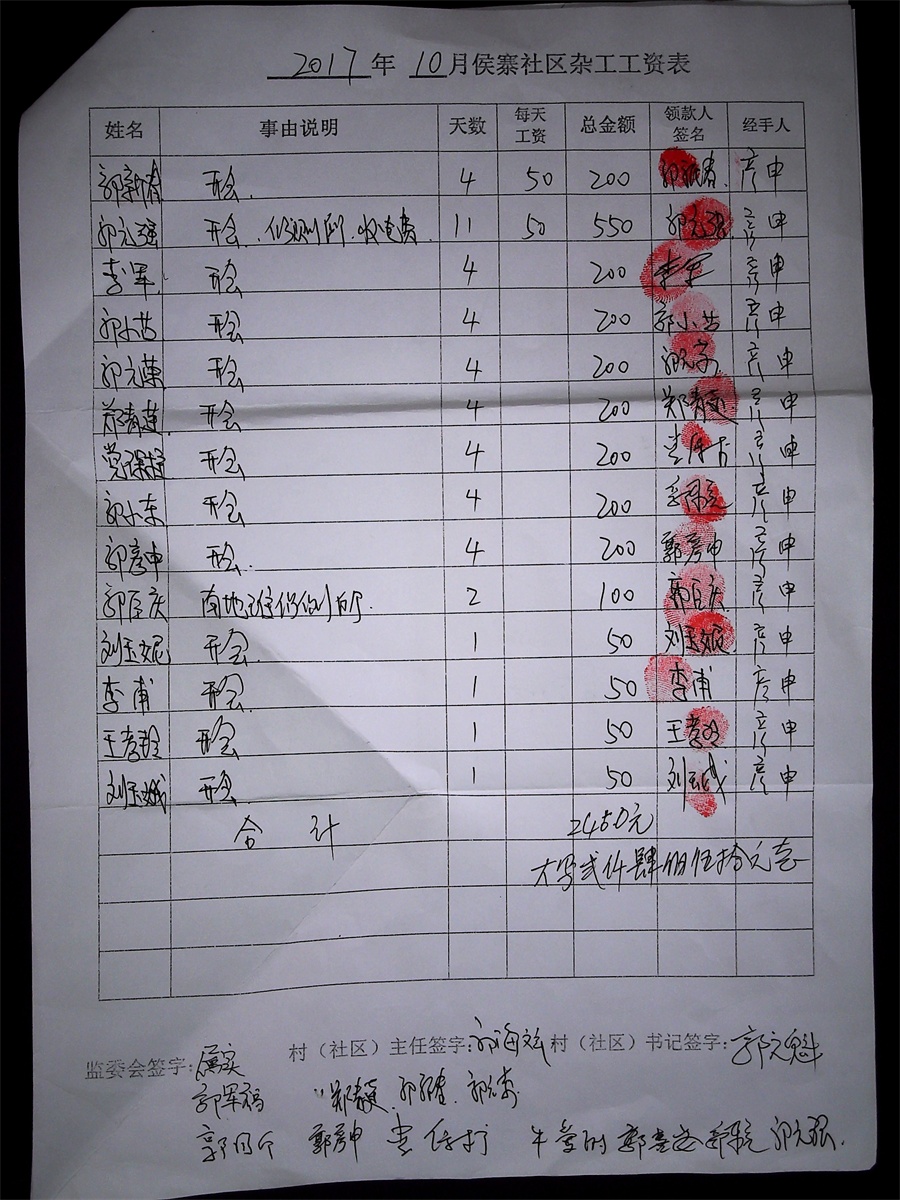 2017年 10月侯寨社区杂工工资表
姓名 事由说明 天数 每天工资 总金额 领款人签名 经手人
郭新春 开会. 4 50 200 郭新春 彦申
郭元强 开会. 收电费. 11 50 550 郭元强 彦申
李军 开会 4 200 李军 彦申
郭小芸 开会 4 200 郭小芸 彦申
郭元荣 开会 4 200 彦申
郑春莲 开会 4 200 郑春莲 彦申
党保打 开会 4 200 党保打 彦申
郭小东 开会 4 200 彦申
郭彦申 开会. 4 200 郭彦申 彦申
郭臣庆 南地 2 100 郭臣庆 彦申
刘玉妮 开会. 1 50 刘玉妮 彦申
李甫 开会. 1 50 李甫 彦申
王彦玲 开会. 1 50 王彦玲 彦申
刘玉娥 开会. 1 50 刘玉娥 彦申
合 计 2450元
大写贰仟肆佰伍拾元
监委会签字: 属实 村（社区）主任签字: 郭海斌 村（社区）书记签字: 郭元魁
郭军福 郑春莲 郭新春
郭彦申 党保打 郭元强